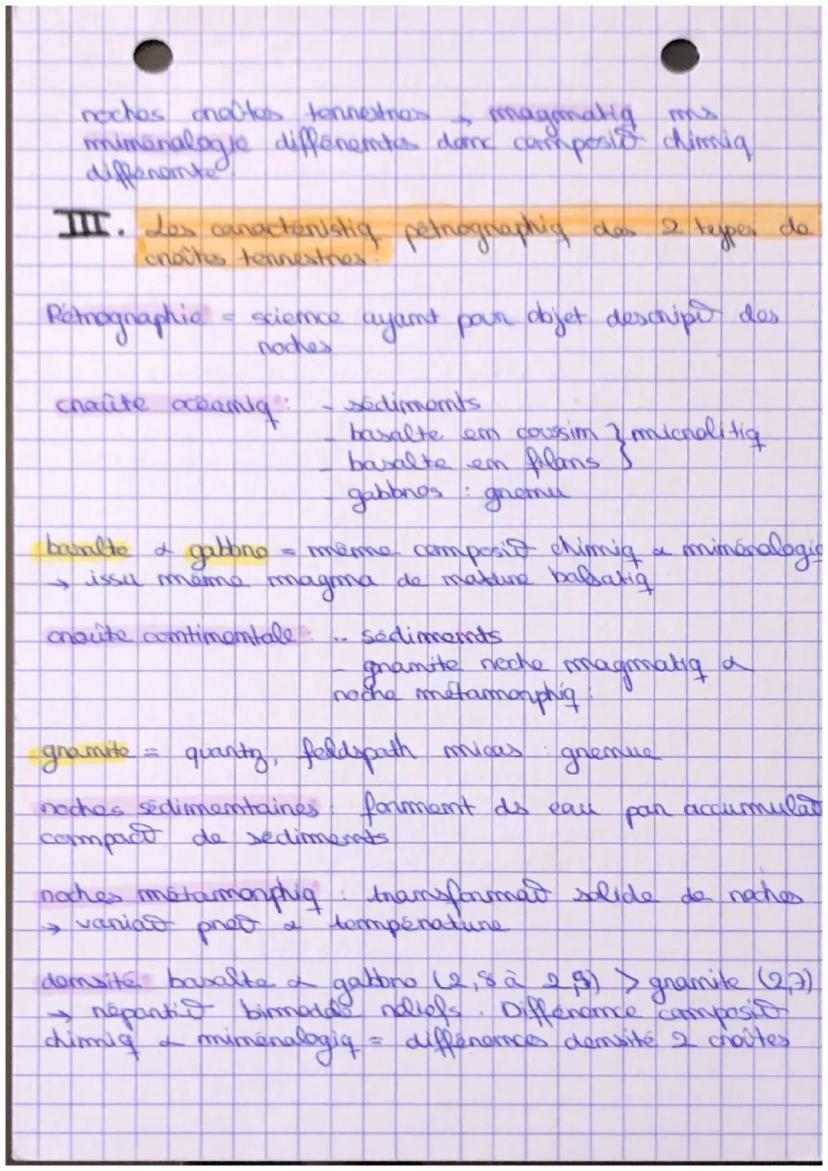 roches croûtes terrestres → magmatiq ms
minéralogie différentes donc composit° chimiq
différente
III. Les caractéristiq pétrographiq des 2 types de
croûtes terrestres :
Pétrographie = science ayant pour objet descript° des
roches
croûte océaniq : - sédiments
- basalte en coussin } microlitiq
- basalte en filons }
- gabbros : grenu
basalte & gabbro = même composit° chimiq & minéralogiq
→ issu même magma de nature balsatiq
croûte continentale : - sédiments
- granite roche magmatiq &
roche métamorphiq.
granite = quartz, feldspath micas : grenue
roches sédimentaires : forment ds eau par accumulat°
compact° de sédiments
roches métamorphiq : transformat° solide de roches
→ variat° pres° & température
densité basalte & gabbro (2,8 à 2,9) > granite (2,7)
→ répartit° bimodale reliefs. Différence composit°
chimiq & minéralogiq = différences densité 2 croûtes